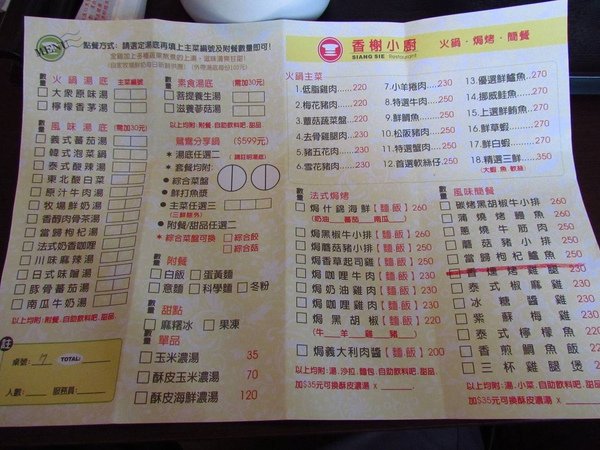 MENU
點餐方式: 請選定湯底再填上主菜編號及附餐數量即可!
數量 火鍋湯底 主菜編號
大衆原味湯
檸檬香茅湯
數量 風味湯底 (需加30元)
義式蕃茄湯
韓式泡菜鍋
泰式酸辣湯
東北酸白菜
原汁牛肉湯
牧場鮮奶湯
香醇肉骨茶湯
當歸枸杞湯
法式奶香咖哩
川味麻辣湯
日式味噌湯
豚骨蕃茄湯
南瓜牛奶湯
以上均附:附餐.自助飲料吧.甜品
註
桌號: 7 TOTAL:
人數: 服務員:
數量 素食湯底 (需加30元)
菩提養生湯
滋養蔘菇湯
以上均附:附餐.自助飲料吧.甜品
鴛鴦分享鍋 ($599元)
湯底任選二
套餐均附:
綜合菜盤
鮮打魚漿
主菜任選三
附餐/甜品任選二
綜合菜盤可換 綜合餃
綜合菇
數量 附餐
白飯 蛋黃麵
意麵 科學麵 冬粉
數量 甜點
麻糬冰 果凍
數量 單品
玉米濃湯 35
酥皮玉米濃湯 70
酥皮海鮮濃湯 120
香榭小廚
SIANG SIE Restaurant
火鍋.焗烤.簡餐
火鍋主菜
1.低脂雞肉.....220
2.梅花豬肉.....220
3.蘑菇蔬菜盤...220
4.去骨雞腿肉...230
5.豬五花肉.....230
6.雪花豬肉.....230
7.小羊捲肉.....230
8.特選牛肉.....250
9.鮮鯛魚.......250
10.松阪豬肉....250
11.特選蟹肉....250
12.首選軟絲仔..250
13.優選鮮鱸魚...270
14.挪威鮭魚.....270
15.上選鮮鮪魚...270
16.鮮草蝦.......270
17.鮮白蝦.......270
18.精選三鮮.....350
(大蝦.魚.軟絲)
數量 法式焗烤
焗什錦海鮮【麵飯】260
(奶油 蕃茄 南瓜)
焗黑椒牛小排【麵飯】250
焗蘑菇豬小排【麵飯】250
焗香草起司雞【麵飯】230
焗咖哩牛肉【麵飯】230
焗奶油雞肉【麵飯】230
焗咖哩雞肉【麵飯】220
焗黑胡椒【麵飯】220
(牛 羊 雞 豬)
焗義大利肉醬【麵飯】200
以上均附:湯.沙拉.麵包.自助飲料吧.甜品
加$35元可換酥皮濃湯 x
數量 風味簡餐
碳烤黑胡椒牛小排 260
蒲燒烤鯛魚 250
蔥燒牛筋肉 250
蘑菇豬小排 250
當歸枸杞鱸魚 250
香燻烤雞腿 230
泰式椒麻雞
冰糖醬雞
紫蘇梅雞
泰式檸檬魚
香煎鯛魚飯
三杯雞腿煲
以上均附:湯.小菜.自助飲料吧.甜品
加$35元可換酥皮濃湯 x